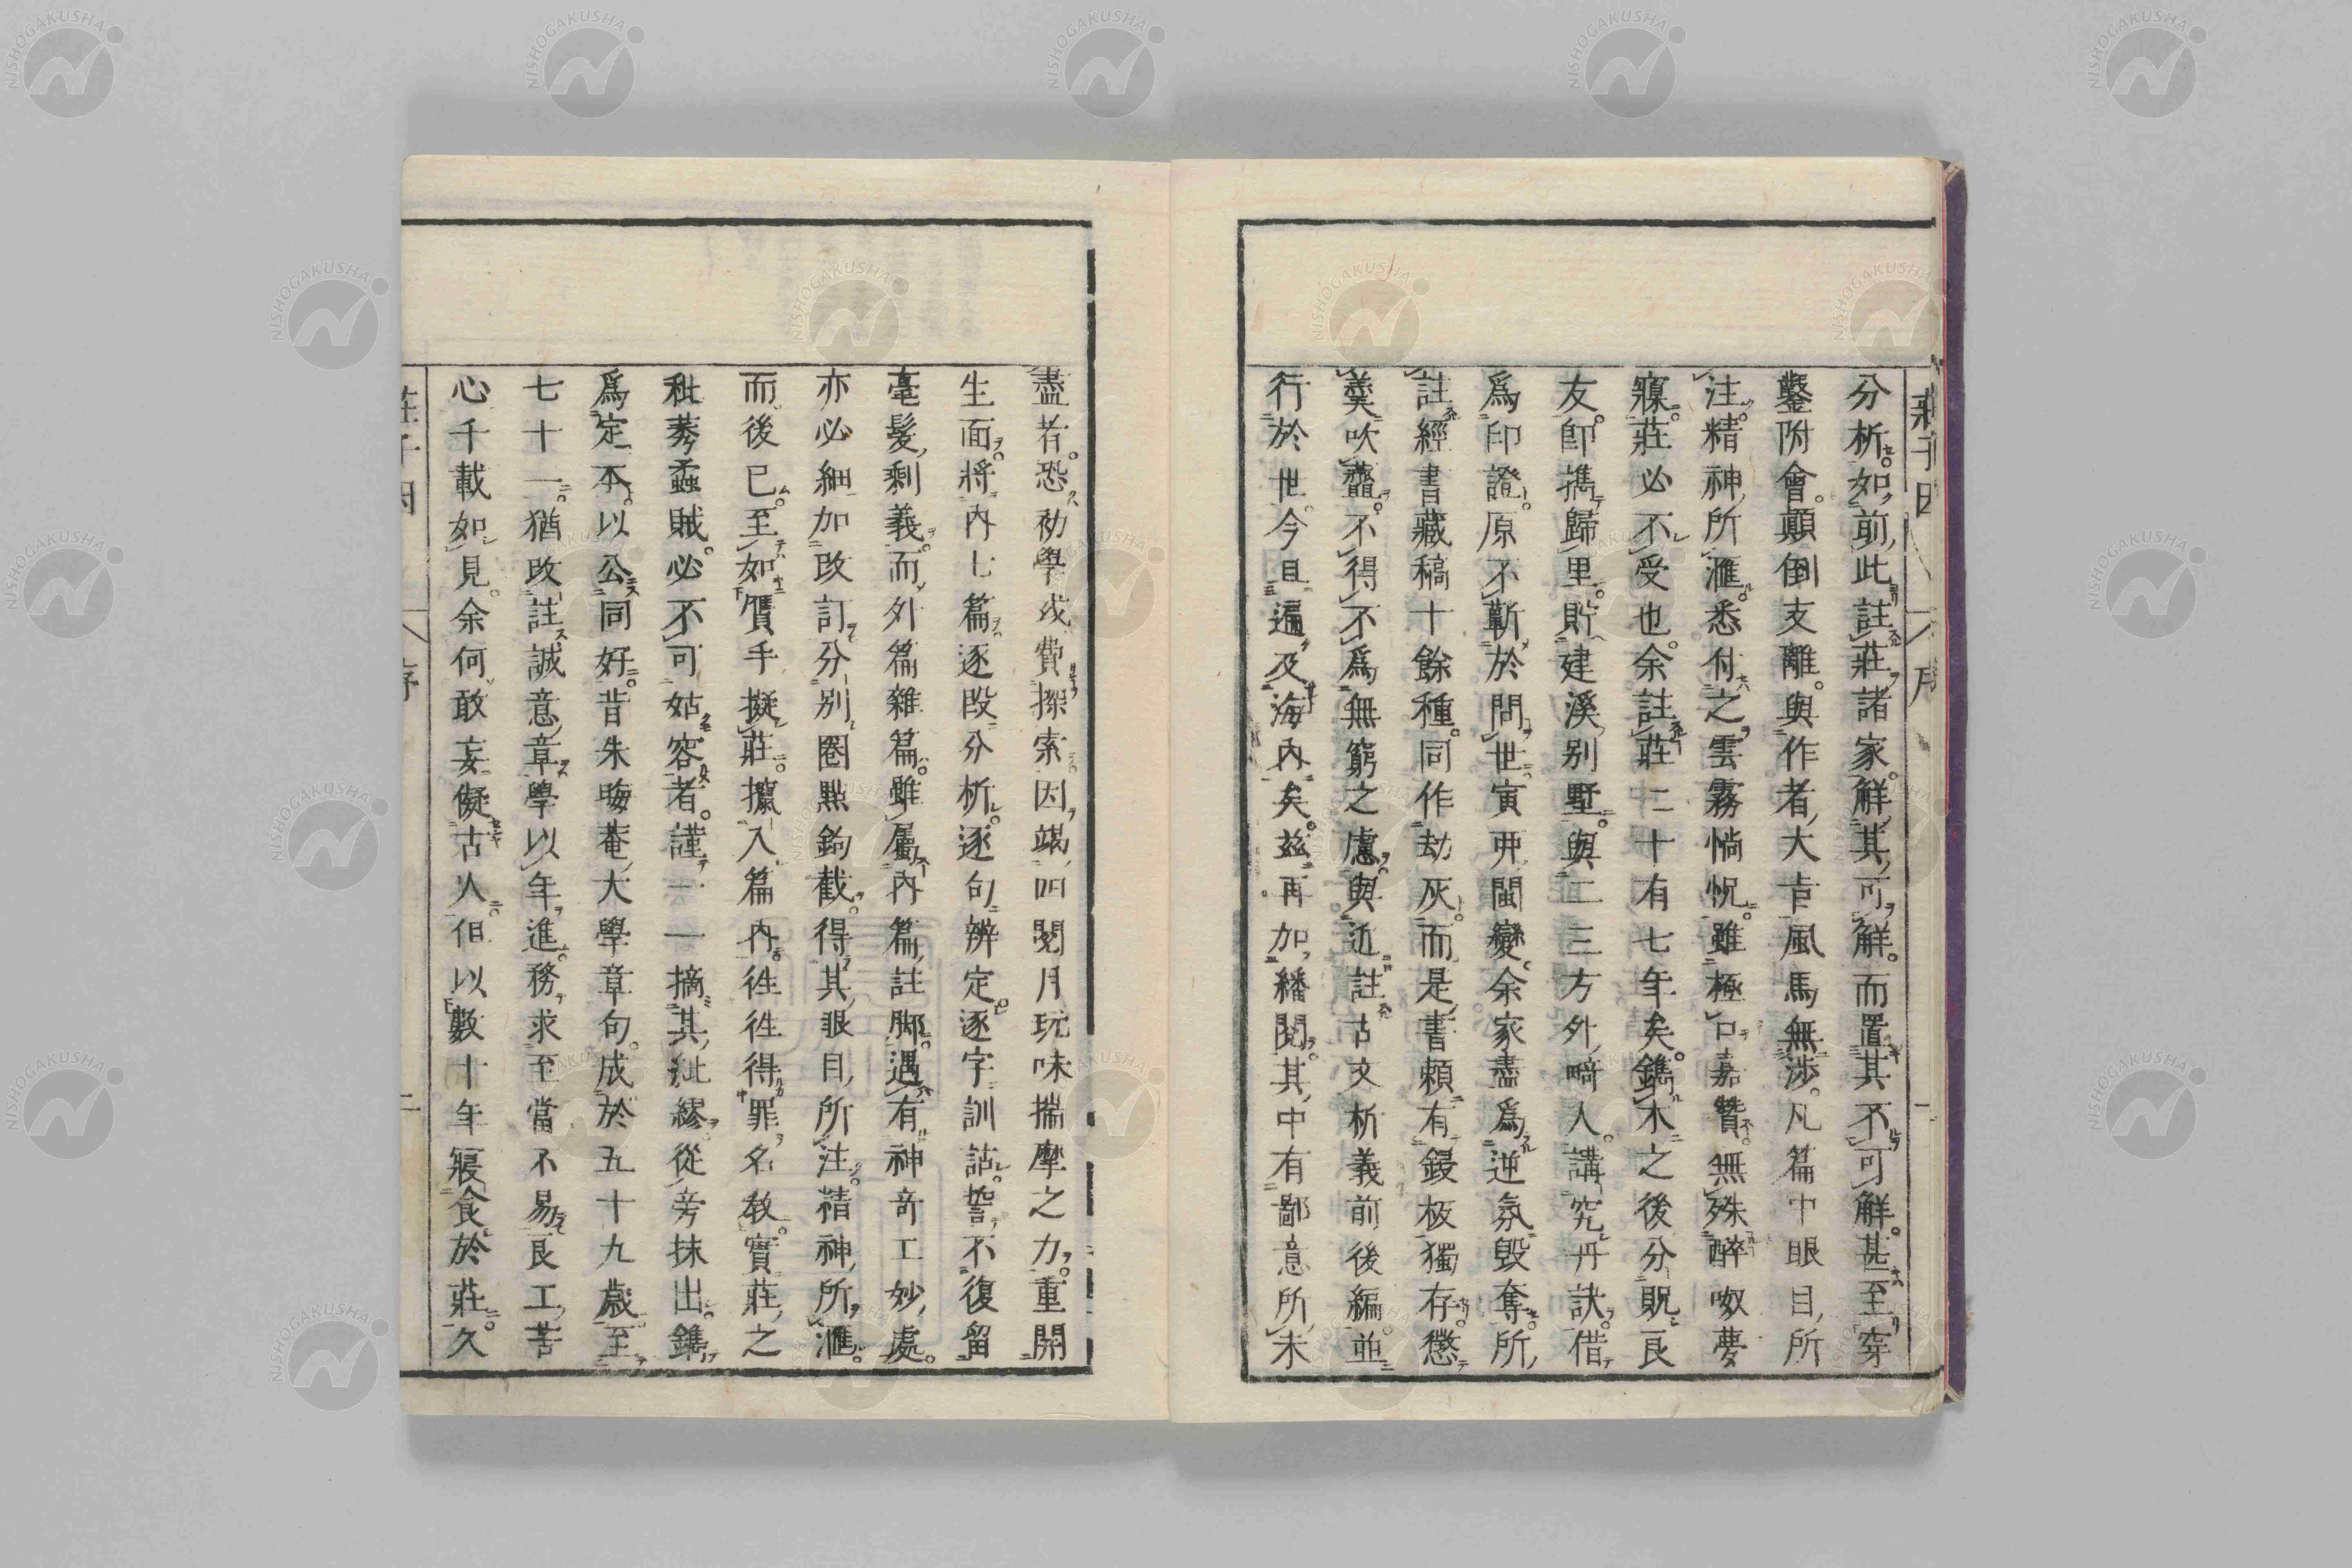 分析。如前此註莊諸家。解其可解。而置其不可解。甚至穿
鑿附會。顛倒支離。與作者大旨風馬無渉。凡篇中眼目所
注。精神所滙。悉付之雲霧惝怳。雖極口嘉贊。無殊醉囈夢
寱。莊必不受也。余註莊二十有七年矣。鐫木之後分貺良
友。卽攜歸里。貯建溪別墅。與二三方外畸人。講究丹訣。借
爲印證。原不蘄於問世。寅卯閩變。余家盡爲逆氛毀奪。所
註經書藏稿十餘種。同作劫灰。而是書頼有鋟板獨存。懲
羹吹虀。不得不爲無窮之慮。與近註古文析義前後編。並
行於世。今且遍及海內矣。茲再加繙閱。其中有鄙意所未
盡者。恐初學或費探索。因竭四閱月玩味揣摩之力。重開
生面。將內七篇。逐段分析。逐句辨定。逐字訓詁。誓不復留
毫髮剩義。而外篇雜篇。雖屬內篇註脚。遇有神奇工妙處。
亦必細加改訂。分別圈點鉤截。得其眼目所注。精神所滙。
而後已。至如贋手擬莊。攙入篇內。徃徃得罪名教。實莊之
秕莠蟊賊。必不可姑容者。謹一一摘其紕繆。從旁抹出。鐫
爲定本。以公同好。昔朱晦菴大學章句。成於五十九歲。至
七十一。猶改註誠意章。學以年進。務求至當不易。良工苦
心千載如見。余何敢妄儗古人。但以數十年寢食於莊。久
莊子因
序
一
莊子因
序
二
NISHOGAKUSHA